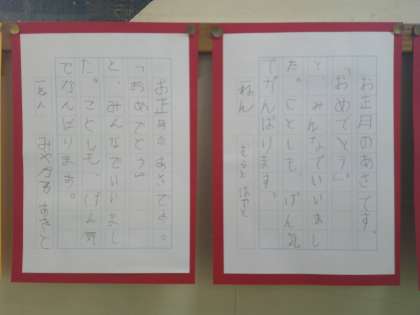 お正月のあさです。
「おめでとう」
と、みんなでいいまし
た。ことしも、げん気
でがんばります。
一ねん
お正月のあさです。
「おめでとう」
と、みんなでいいまし
た。ことしも、げん気
でがんばります。